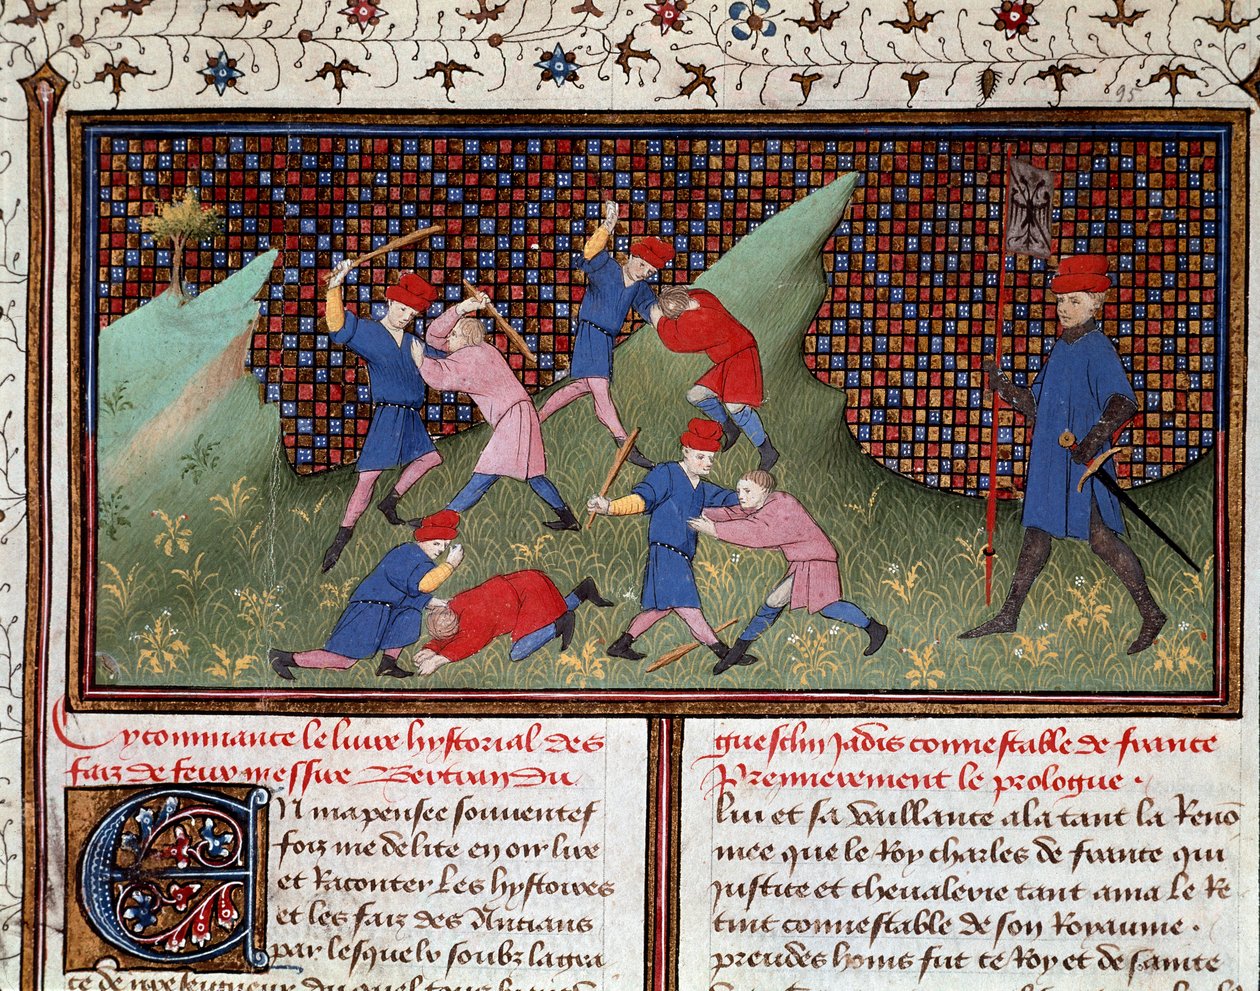 95
Cy commance le livre hystorial des
faiz de feux messire Bertran du
En ma pensee souventef
foiz me delite en oir lire
et Raconter les hystoires
et les faiz des Antians
par lesquelx soubz la gra
gueselin Jadis connestable de france
Premierement le prologue .
lui et sa vaillance ala tant la Renõ
mee que le Roy charles de france qui
justice et chevalerie tant ama le Re
tint connestable de son Royaume .
preudes homs fut ce Roy et de sainte